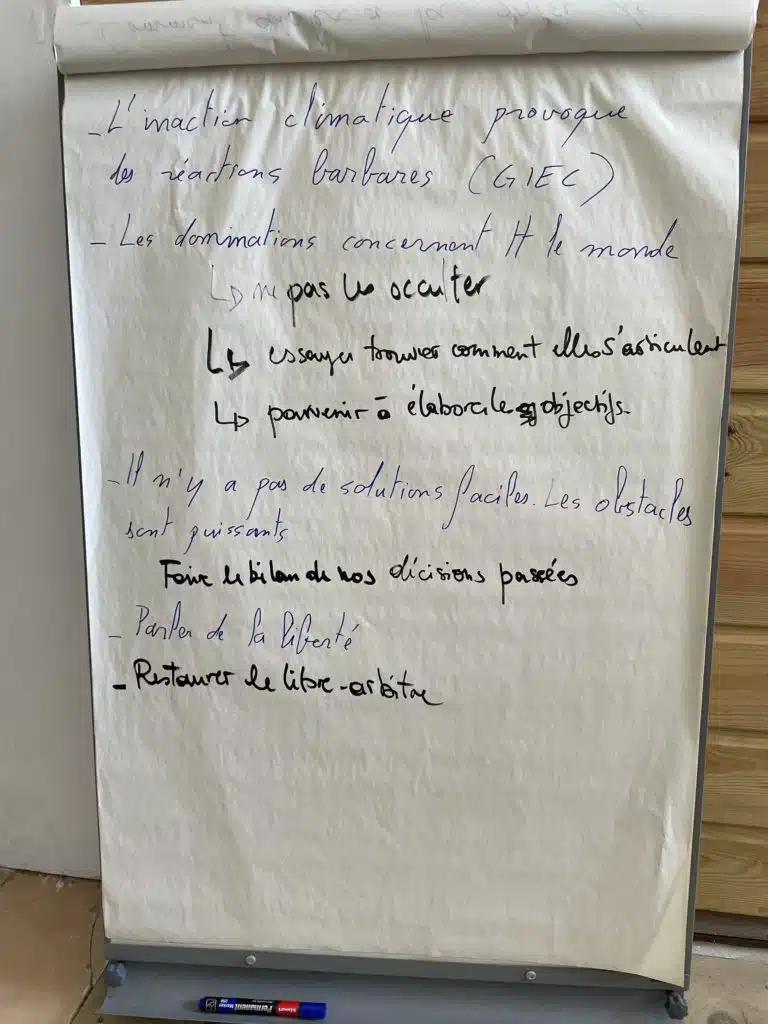 - L'inaction climatique provoque
des réactions barbares (GIEC)
- Les dominations concernent tt le monde
↳ ne pas les occulter
↳ essayer trouver comment elles s'articulent
↳ parvenir à élaborer les objectifs.
- Il n'y a pas de solutions faciles. Les obstacles
sont puissants
Faire le bilan de nos décisions passées
- Parler de la liberté
- Restaurer le libre-arbitre
Permanent